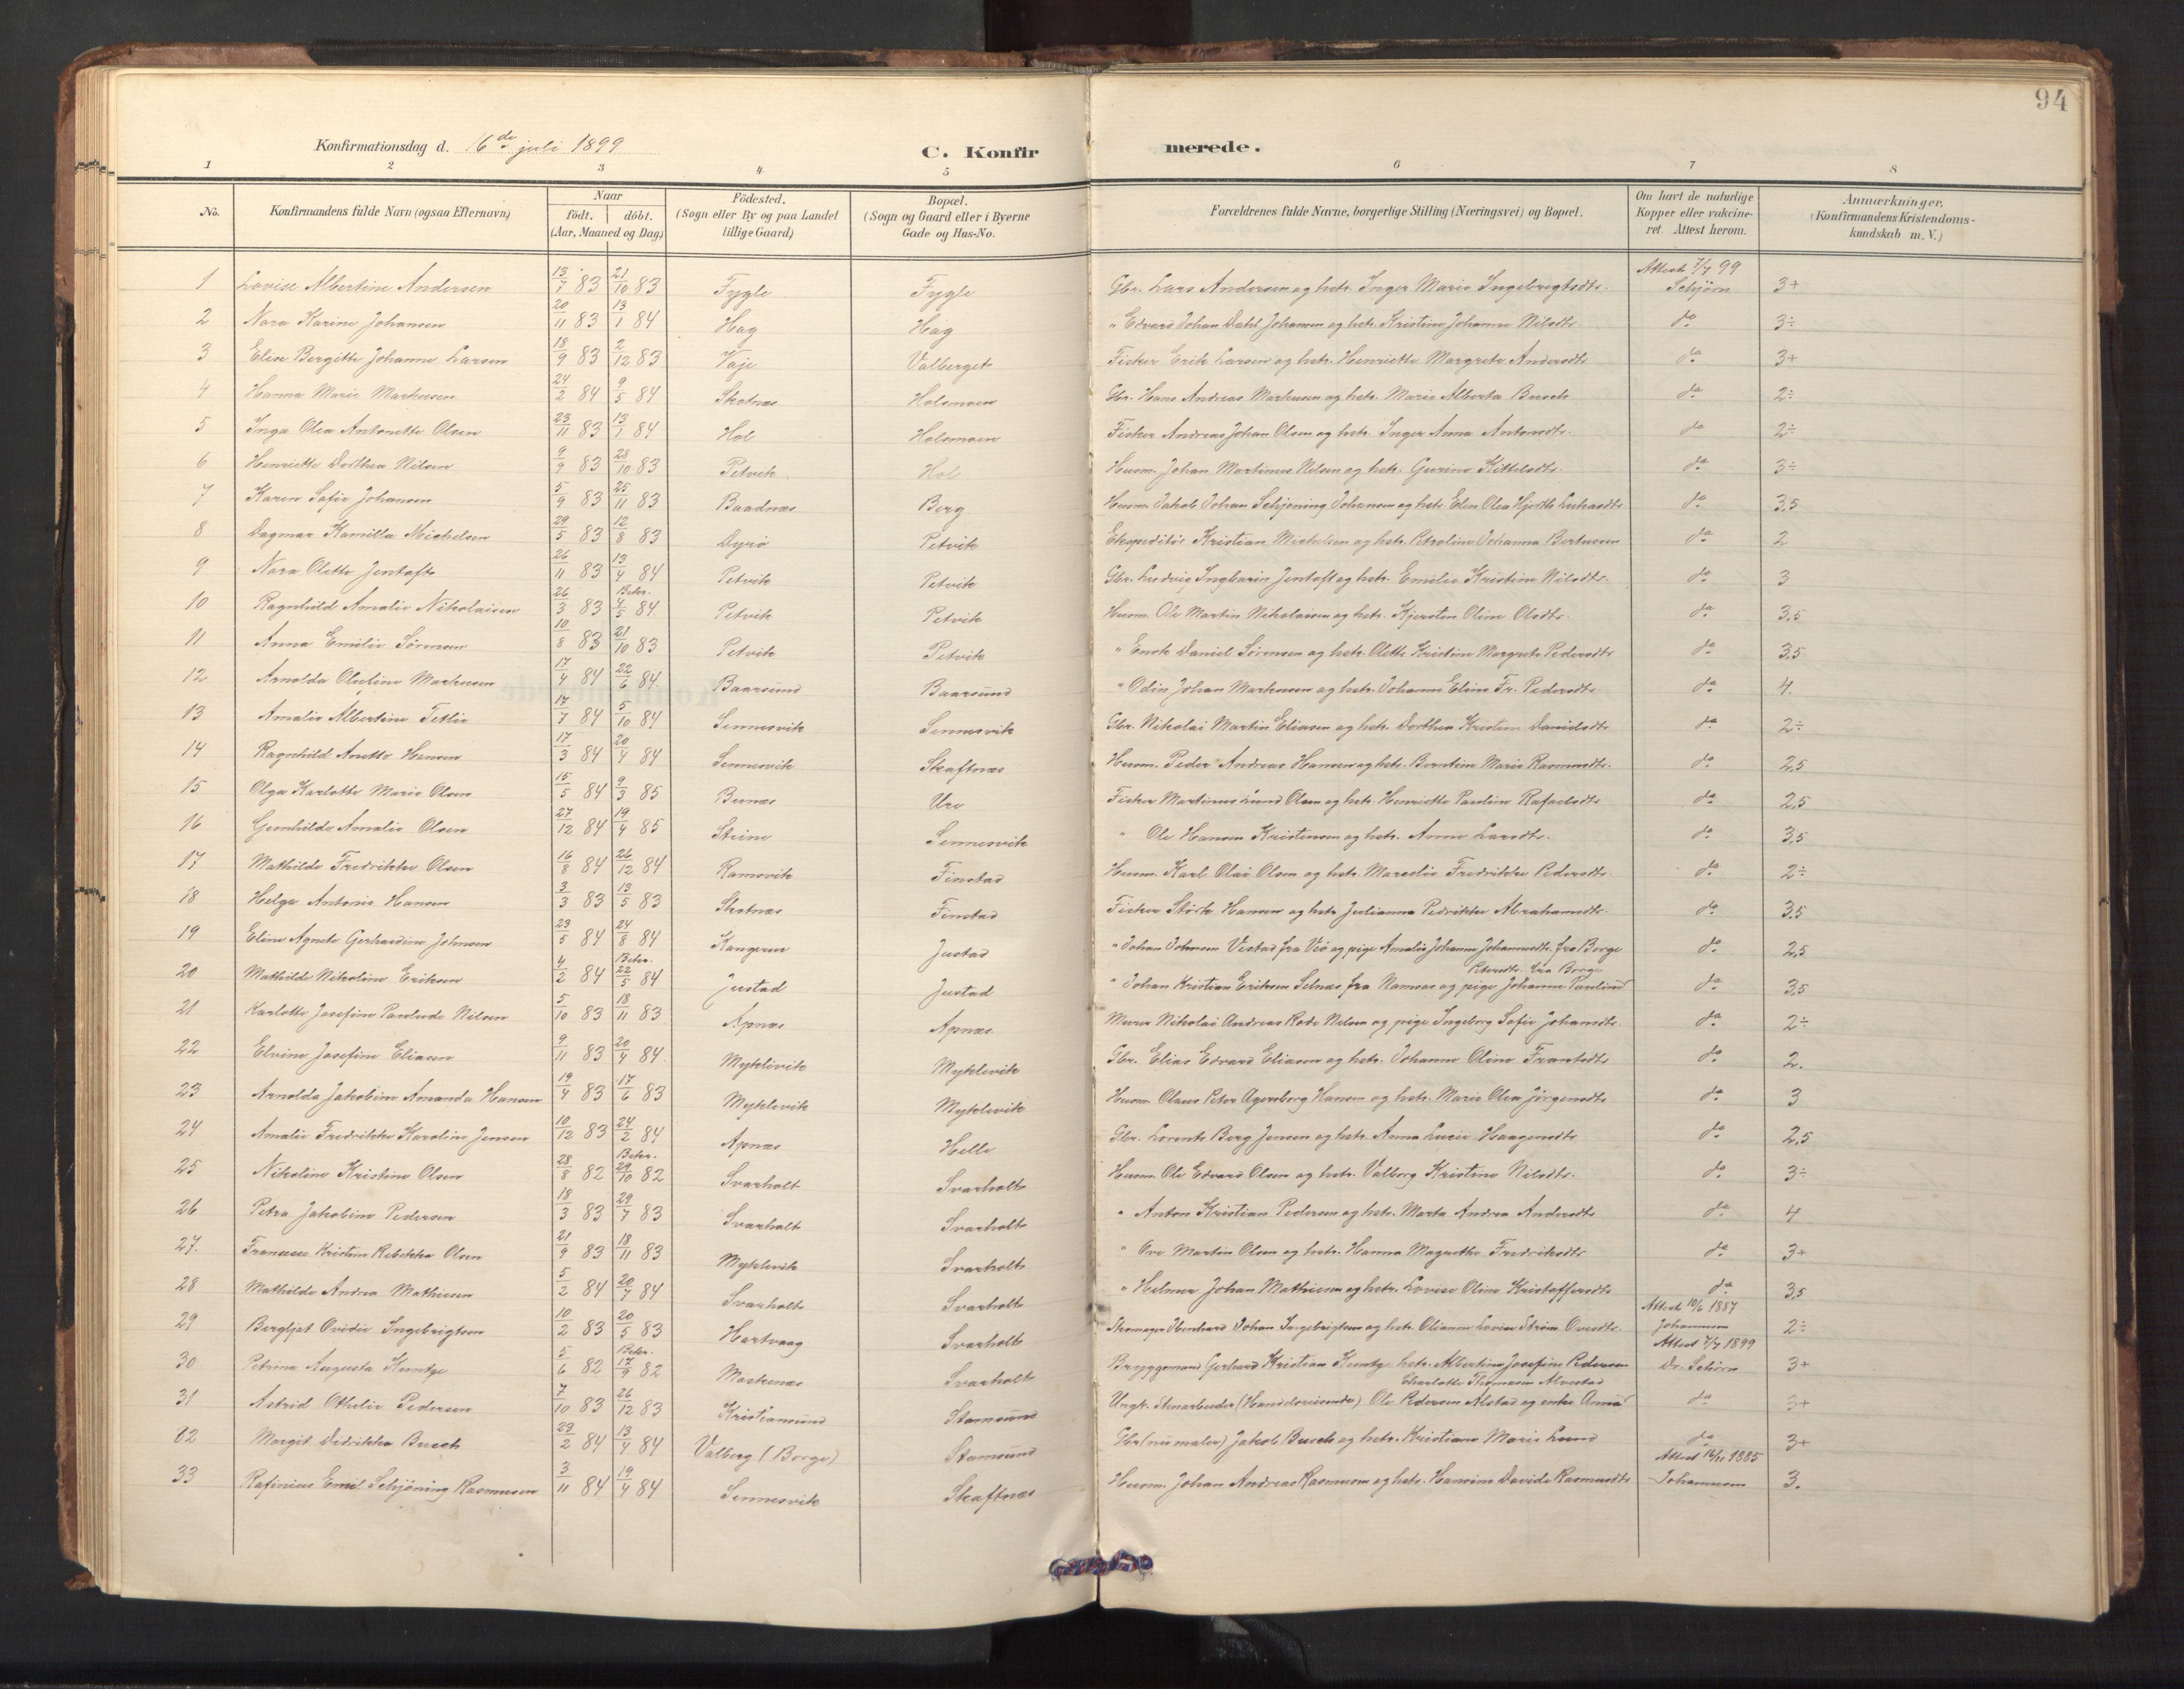 94
Konfirmationsdag d. 16de juli 1899
C. Konfirmerede.
1 2 3 4 5 6 7 8
No. | Konfirmandens fulde Navn (ogsaa Efternavn) | Naar födt. | döbt. (Aar, Maaned og Dag) | Födested. (Sogn eller By og paa Landet tillige Gaard) | Bopæl. (Sogn og Gaard eller i Byerne Gade og Hus-No. | Forældrenes fulde Navne, borgerlige Stilling (Næringsvei) og Bopæl. | Om havt de naturlige Kopper eller vakcineret. Attest herom. | Anmærkninger. (Konfirmandens Kristendomskundskab m. V.)
1 Lovise Albertine Andersen 13/7 83 21/10 83 Fygle Fygle Gbr. Lars Andersen og hstr. Inger Marie Ingebrigtsdtr. Attest 7/7 99 Schjørn 3+
2 Nora Karine Johansen 20/11 83 13/1 84 Hag Hag " Edvard Johan Dahl Johansen og hstr. Kristine Johanna Nilsdtr. do 3÷
3 Elise Bergitte Johanna Larsen 18/9 83 2/12 83 Vaje Valberget Fisker Erik Larsen og hstr. Henriette Margrete Andersdtr. do 3+
4 Hanna Marie Markusen 24/2 84 9/5 84 Skotnæs Holsmoen Gbr. Hans Andreas Markusen og hstr. Marie Alberta Busch do 2÷
5 Inga Olea Antonette Olsen 23/11 83 13/1 84 Hol Holsmoen Fisker Andreas Johan Olsen og hstr. Inger Anna Antonsdtr. do 2÷
6 Henriette Dorthea Nilsen 9/9 83 28/10 83 Petvik Hol Husm. Johan Martinus Nilsen og hstr. Gurine Kittelsdtr. do 3÷
7 Karen Sofie Johansen 5/9 83 25/11 83 Baadnæs Berg Husm. Jakob Johan Schjøning Johansen og hstr. Elen Olea Hjorth do 3,5
8 Dagmar Kamilla Michelsen 29/5 83 12/8 83 Dyrö Petvik Ekspeditör Kristian Michelsen og hstr. Petroline Johanna Berntsen do 2
9 Nora Olette Jentoft 26/11 83 13/4 84 Petvik Petvik Gbr. Ludvig Ingbarin Jentoft og hstr. Emilie Kristine Nilsdtr. do 3
10 Ragnhild Amalie Nikolaisen 26/3 83 Bekr. 4/5 84 Petvik Petvik Husm. Ole Martin Nikolaisen og hstr. Kjersten Oline Olsdtr. do 3,5
11 Anna Emilie Sörensen 10/8 83 21/10 83 Petvik Petvik " Enok Daniel Sörensen og hstr. Olette Kristine Margrete Pedersdtr. do 3,5
12 Arnolda Olufine Markusen 17/4 84 22/6 84 Baarsund Baarsund " Odin Johan Markusen og hstr. Johanna Eline Fr. Pedersdtr. do 4.
13 Amalie Albertine Tetlie 17/7 84 5/10 84 Sennesvik Sennesvik Gbr. Nikolai Martin Eliasen og hstr. Dorthea Kristine Danielsdtr. do 2÷
14 Ragnhild Anette Hansen 17/3 84 20/4 84 Sennesvik Skaftnæs Husm. Peder Andreas Hansen og hstr. Berntine Marie Rasmusdtr. do 2,5
15 Olga Karlotte Marie Olsen 15/5 84 9/3 85 Bunæs Ure Fisker Martinus Lund Olsen og hstr. Henriette Pauline Rafaelsdtr. do 2,5
16 Gunhilde Amalie Olsen 27/12 84 19/4 85 Steine Sennesvik " Ole Hansen Kristensen og hstr. Anne Larsdtr. do 3,5
17 Mathilde Fredrikke Olsen 16/8 84 26/12 84 Ramsvik Finstad Husm. Karl Olai Olsen og hstr. Marselie Fredrikke Pedersdtr. do 2÷
18 Helga Antonie Hansen 3/3 83 13/5 83 Skotnæs Finstad Fisker Hansen og hstr. Julianna Pedrikke Abrahamsdtr. do 3,5
19 Eline Agnete Gerhardine Johnsen 23/5 84 24/8 84 Kangerur Justad " Johan Johnsen Vestad fra Veö og pige Amalie Johanna Johannesdtr. fra Borge do 2,5
20 Mathilde Nikoline Eriksen 4/2 84 Bekr. 22/5 84 Justad Justad " Johan Kristian Eriksen Selnæs fra Namsos og pige Johanne Pauline Petersdtr. fra Borge do 3,5
21 Karlotte Josefine Paulude Nilsen 5/10 83 18/11 83 Apnæs Apnæs. Murer Nikolai Andreas Rode Nilsen og pige Ingeborg Sofie Johansdtr. do 2÷
22 Elvine Josefine Eliasen 9/11 83 20/4 84. Myklevik Myklevik Gbr. Elias Edvard Eliasen og hstr. Johanne Oline Frantsdtr. do 2.
23 Arnolda Jakobine Amanda Hansen 19/4 83 17/6 83 Myklevik Myklevik Husm. Olaus Peter Agersborg Hansen og hstr. Marie Olea Jörgensdtr. do 3
24 Amalie Fredrikke Karoline Jensen 10/12 83 24/2 84 Apnæs Helle Gbr. Lorents Berg Jensen og hstr. Anna Lucie Haagensdtr. do 2,5
25 Nikoline Kristine Olsen 28/8 82 Bekr. 29/10 82 Svarholt Svarholt Husm. Ole Edvard Olsen og hstr. Valborg Kristine Nilsdtr. do 3÷
26 Petra Jakobine Pedersen 18/3 83 29/7 83 Svarholt Svarholt " Anton Kristian Pedersen og hstr. Marta Andrea Andersdtr. do 4
27. Fransese Kristine Rebekka Olsen 21/9 83 18/11 83 Myklevik Svarholt " Ove Martin Olsen og hstr. Hanna Magrethe Fredriksdtr. do 3+
28 Mathilde Andrea Mathisen 5/2 84 20/7 84 Svarholt Svarholt " Helmer Johan Mathisen og hstr. Lovise Oline Kristoffersdtr. do 3,5
29 Bergljot Ovidie Ingebrigtsen 10/2 83 20/5 83 Hartvaag Svarholt Skomager Ibenhard Johan Ingebrigtsen og hstr. Olianna Lovise Ström Ovesdtr. Attest 10/6 1887 Johannesen 2÷
30 Petrina Augusta Kuntze 5/6 82 Bekr. 17/9 82 Moskenæs Svarholt Bryggemand Gerhard Kristian Kuntze hstr. Albertine Josefine Pedersen Attest 7/7 1899 Dr. Schörn 3+
31 Astrid Othelie Pedersen 7/10 83 26/12 83 Kristiansund Stamsund Ungk. Stenarbeider (Handelsreisende) Ole Pedersen Alstad og enke Anna Charlotte Thomasen Alvestad do 3+
32 Margit Didrikke Busch 23/2 84 13/4 84 Valberg (Borge) Stamsund Gbr (nu maler) Jakob Busch og hstr. Kristiane Marie Lund do 3+
33 Rafinius Emil Schjöning Rasmussen 3/11 84 19/4 84 Sennesvik Skaftnæs Husm. Johan Andreas Rasmussen og hstr. Hansine Davida Rasmusdtr. Attest 16/11 1885 Johannesen 3.